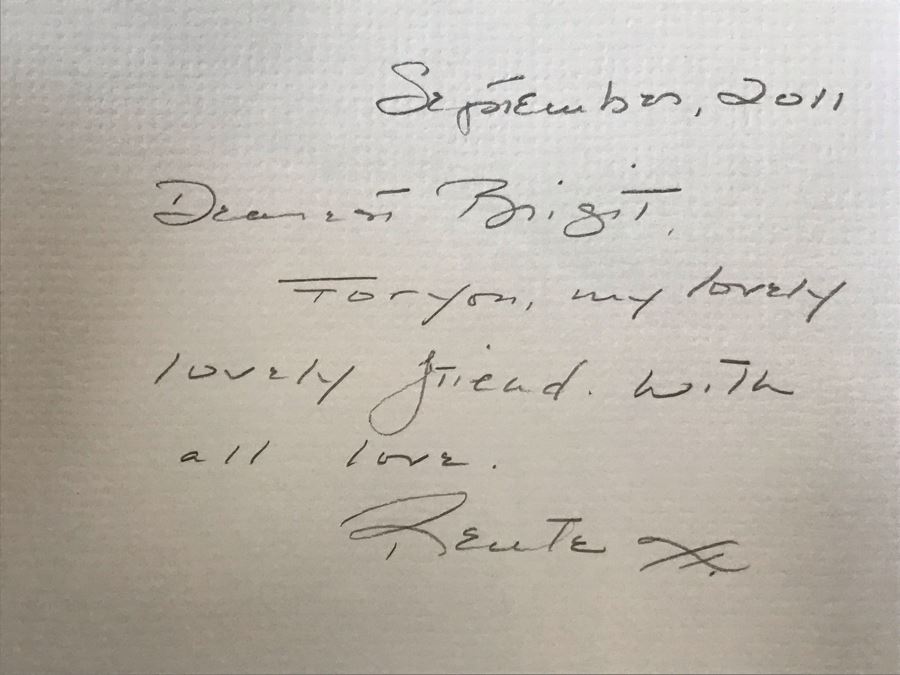 September, 2011
Dearest Brigit,
For you, my lovely
lovely friend. With
all love.
Renate X.